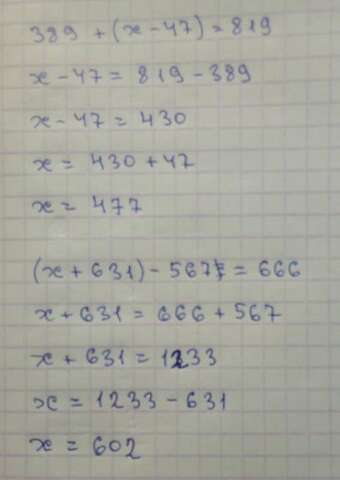 389 + (x - 47) = 819
x - 47 = 819 - 389
x - 47 = 430
x = 430 + 47
x = 477
(x + 631) - 567 = 666
x + 631 = 666 + 567
x + 631 = 1233
x = 1233 - 631
x = 602